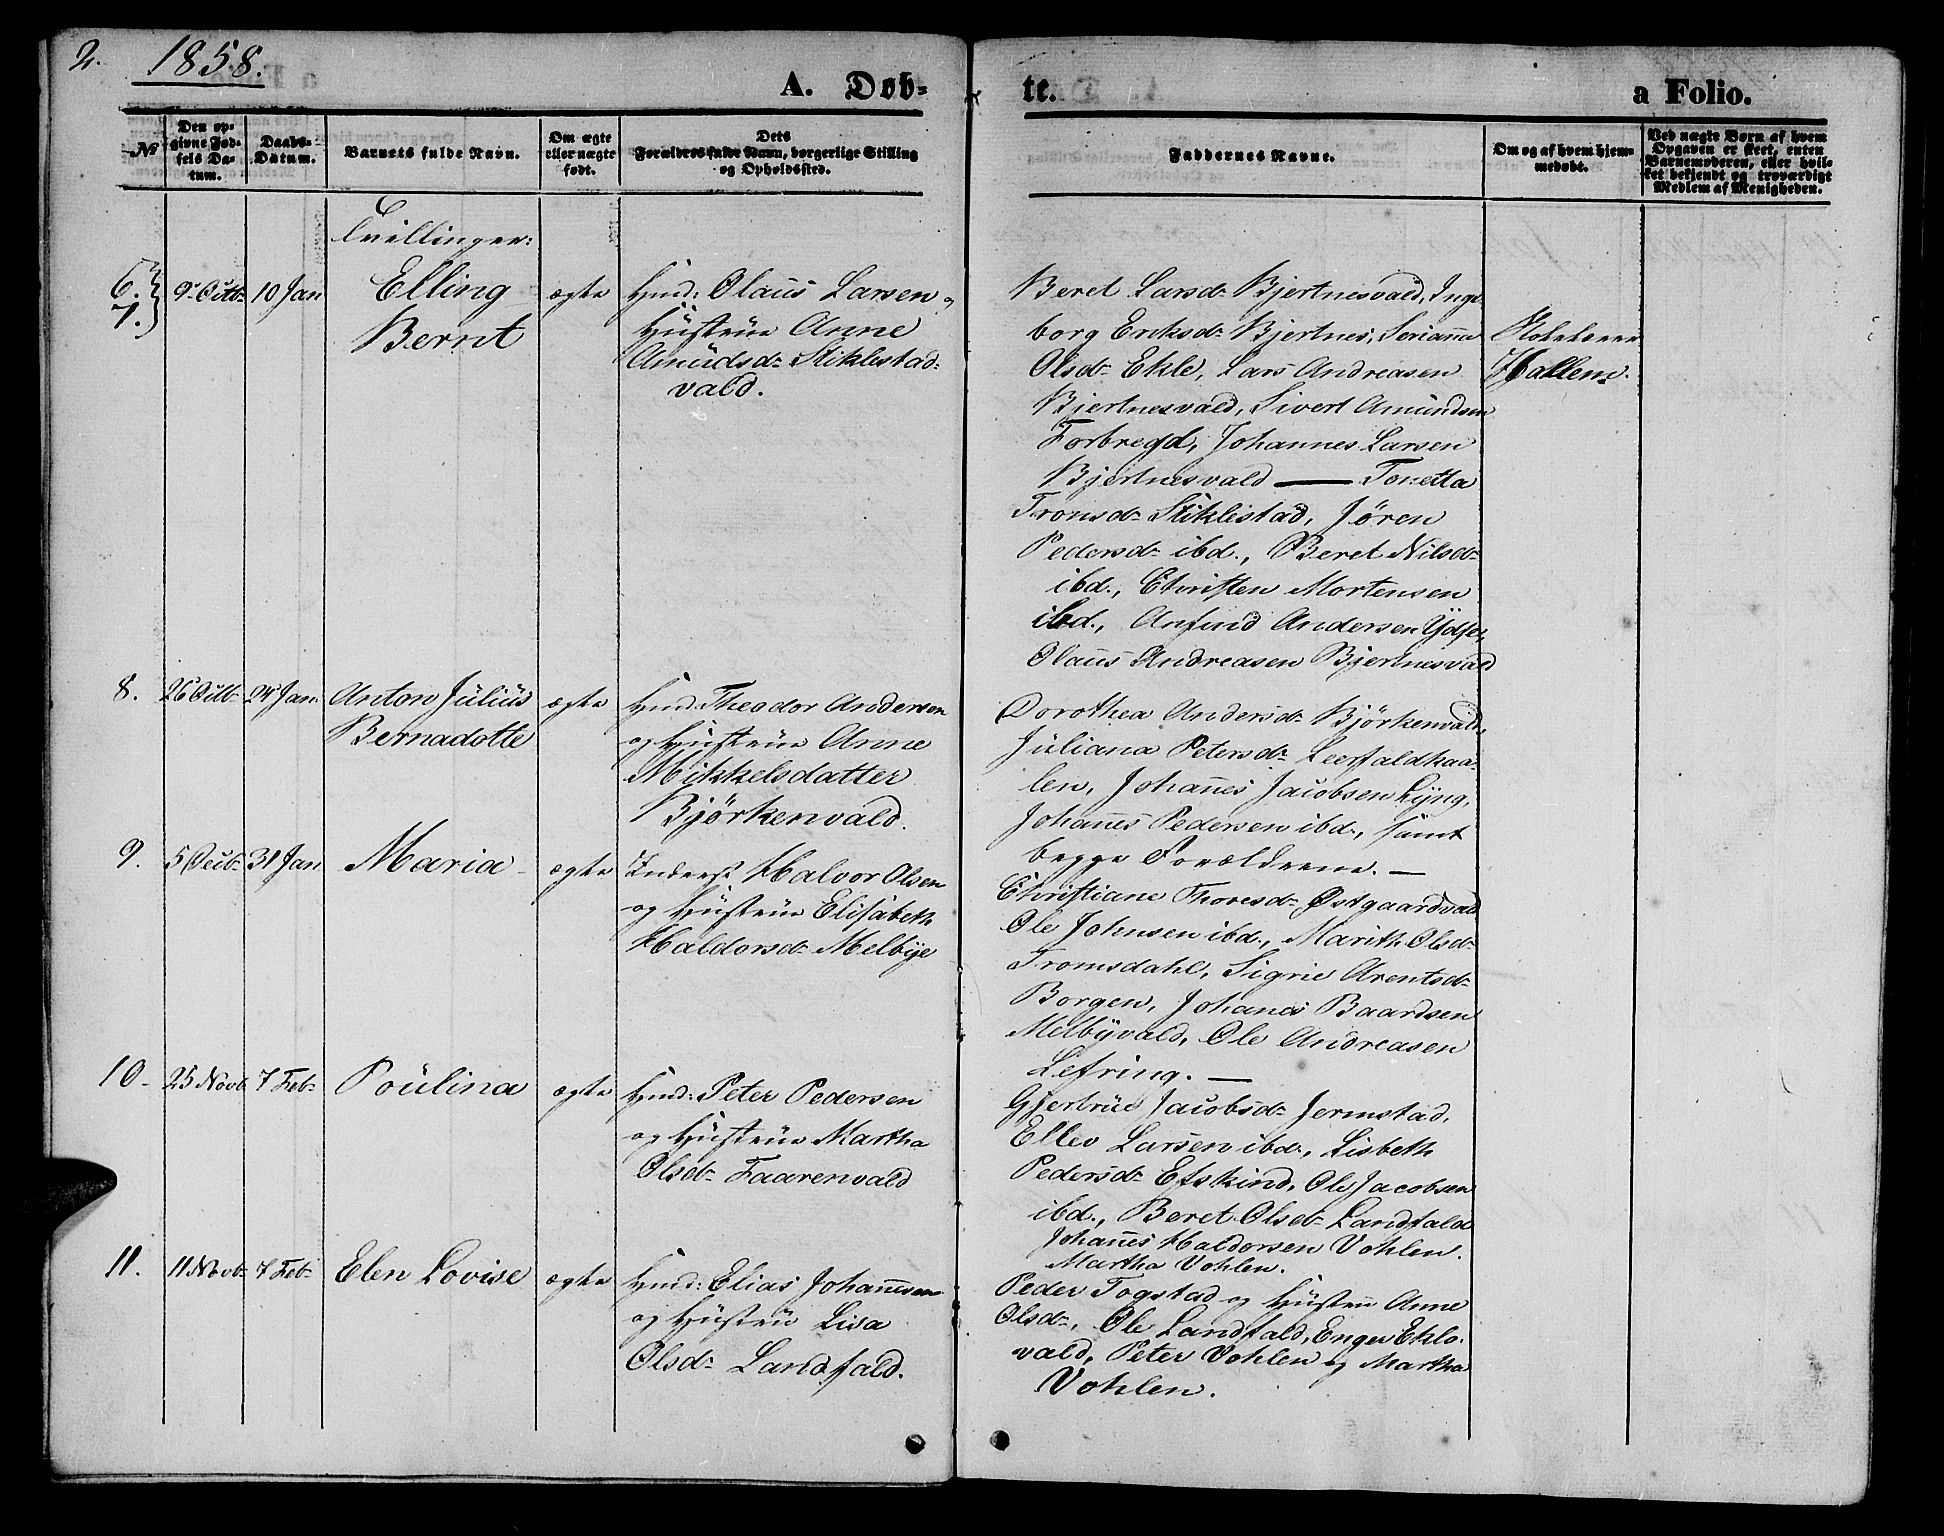 2. 1858.
A. Døb-
te.
a Folio.
№
Den op-
givne Fød-
sels Da-
tum.
Daabs-
Datum.
Barnets fulde Navn.
Om ægte
eller uægte
født.
Dets
Forældres fulde Navn, borgerlige Stilling
og Opholdssted.
Faddernes Navne.
Om og af hvem hjem-
medøbt.
Ved uægte Børn af hvem
Opgaven er skeet, enten
Barnemoderen, eller hvil-
ket bekjendt og troværdigt
Medlem af Menigheden.
Tvillinger:
6.
7.
9 Octb 10 Jan
Elling
Bernt
ægte
Huusmd: Olaus Larsen og
Hustrue Anne
Amundsd. Stiklestad-
vald.
Beret Larsd. Bjertnesvald, Inge
borg Eriksd. Bjertnes, Serianna
Olsd. Ekle, Lars Andreasen
Bjertnesvald, Sivert Amundsen
Forbregd, Johannes Larsen
Bjertnesvald — Tonetta
Tronsd. Stiklestad, Jøren
Pedersd. ibd., Beret Nilsd.
ibd., Christen Mortensen
ibd., Anfind Andersen Ydse,
Olaus Andreasen Bjertnesvald
Hallem.
8. 26 Octb 24 Jan.
Anton Julius
Bernadotte
ægte
Huusmd: Theodor Andersen
og Hustrue Anne
Mikkelsdatter
Bjørkenvald.
Dorothea Andersd. Bjørkenvald,
Juliana Petersd. Leerfaldhaa-
len, Johannes Jacobsen Lyng,
Johannes Pedersen ibd., samt
begge Forældrene. —
9. 5 Octb 31 Jan
Maria
ægte
Inderst Halvor Olsen
og Hustrue Elisabeth
Haldorsd. Melbye
Christiane Thoresd. Østgaardvald
Ole Johnsen ibd., Marith Olsd.
Tromsdahl, Sigrie Arentsd.
Borgen, Johanes Baardsen
Melbyvald, Ole Andreasen
Lefring. —
10. 25 Novb 7 Feb.
Poulina
ægte
Huusmd: Peter Pedersen
og Hustrue Martha
Olsd. Faarenvald
Gjertrue Jacobsd. Jermstad,
Ellev Larsen ibd., Lisbeth
Pedersd. Efskind, Ole Jacobsen
ibd., Beret Olsd. Landfald
Johannes Haldorsen Vohlen.
Martha Vohlen.
11. 11 Novb. 7 Feb.
Elen Lovise
ægte
Huusmd: Elias Johannesen
og Hustru Lisa
Olsd. Landfald.
Peder Togstad og Hustru Anne
Olsd., Ole Landfald, Enger Eklo-
vald, Peter Vohlen og Martha
Vohlen.